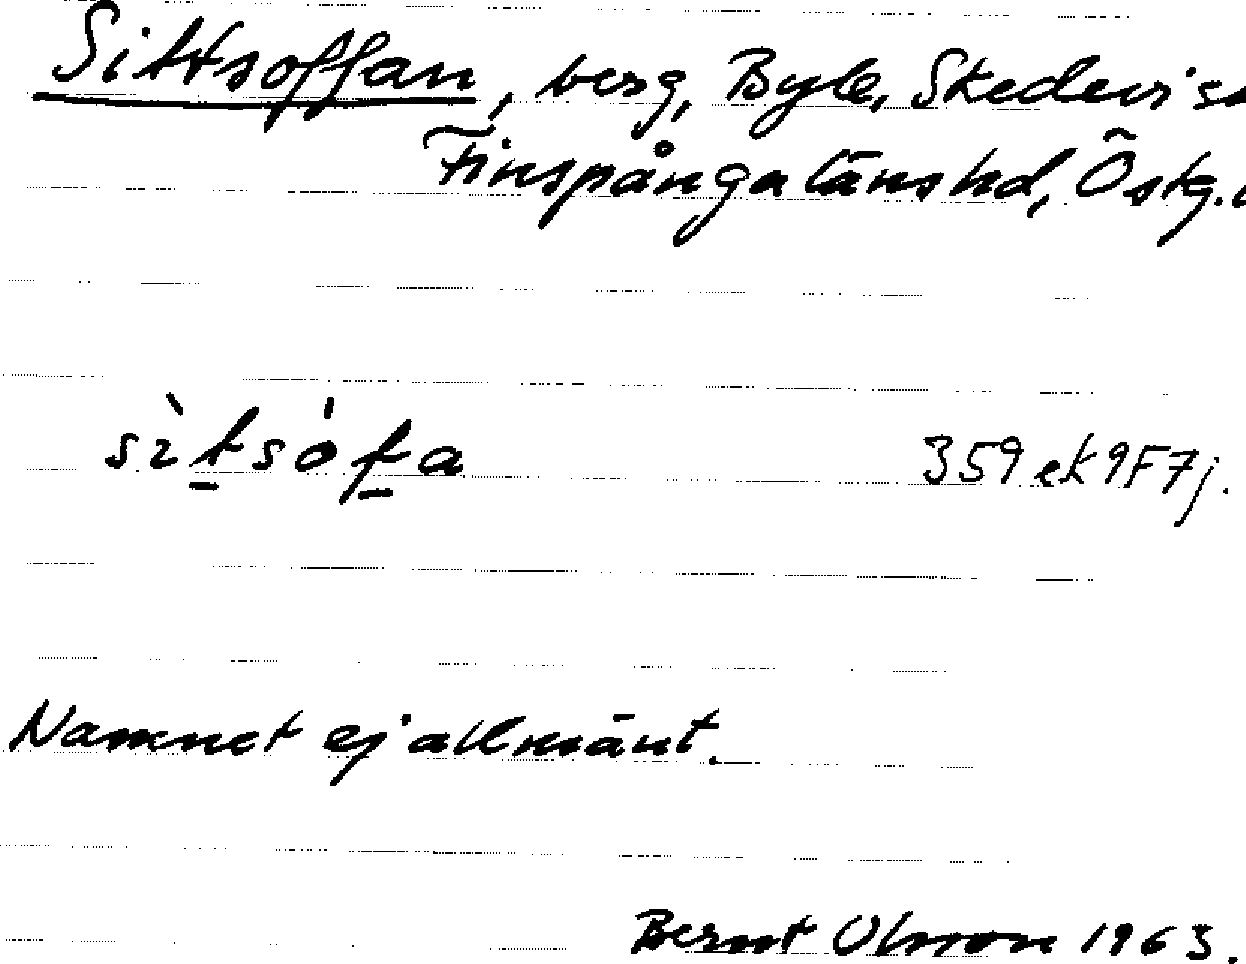 Sittsoffan, berg, Byle, Skedevi s
Finspånga läns hd, Östg.
sìtsófa 359 ek 9F7j.
Namnet ej allmänt.
Bernt Olsson 1963.